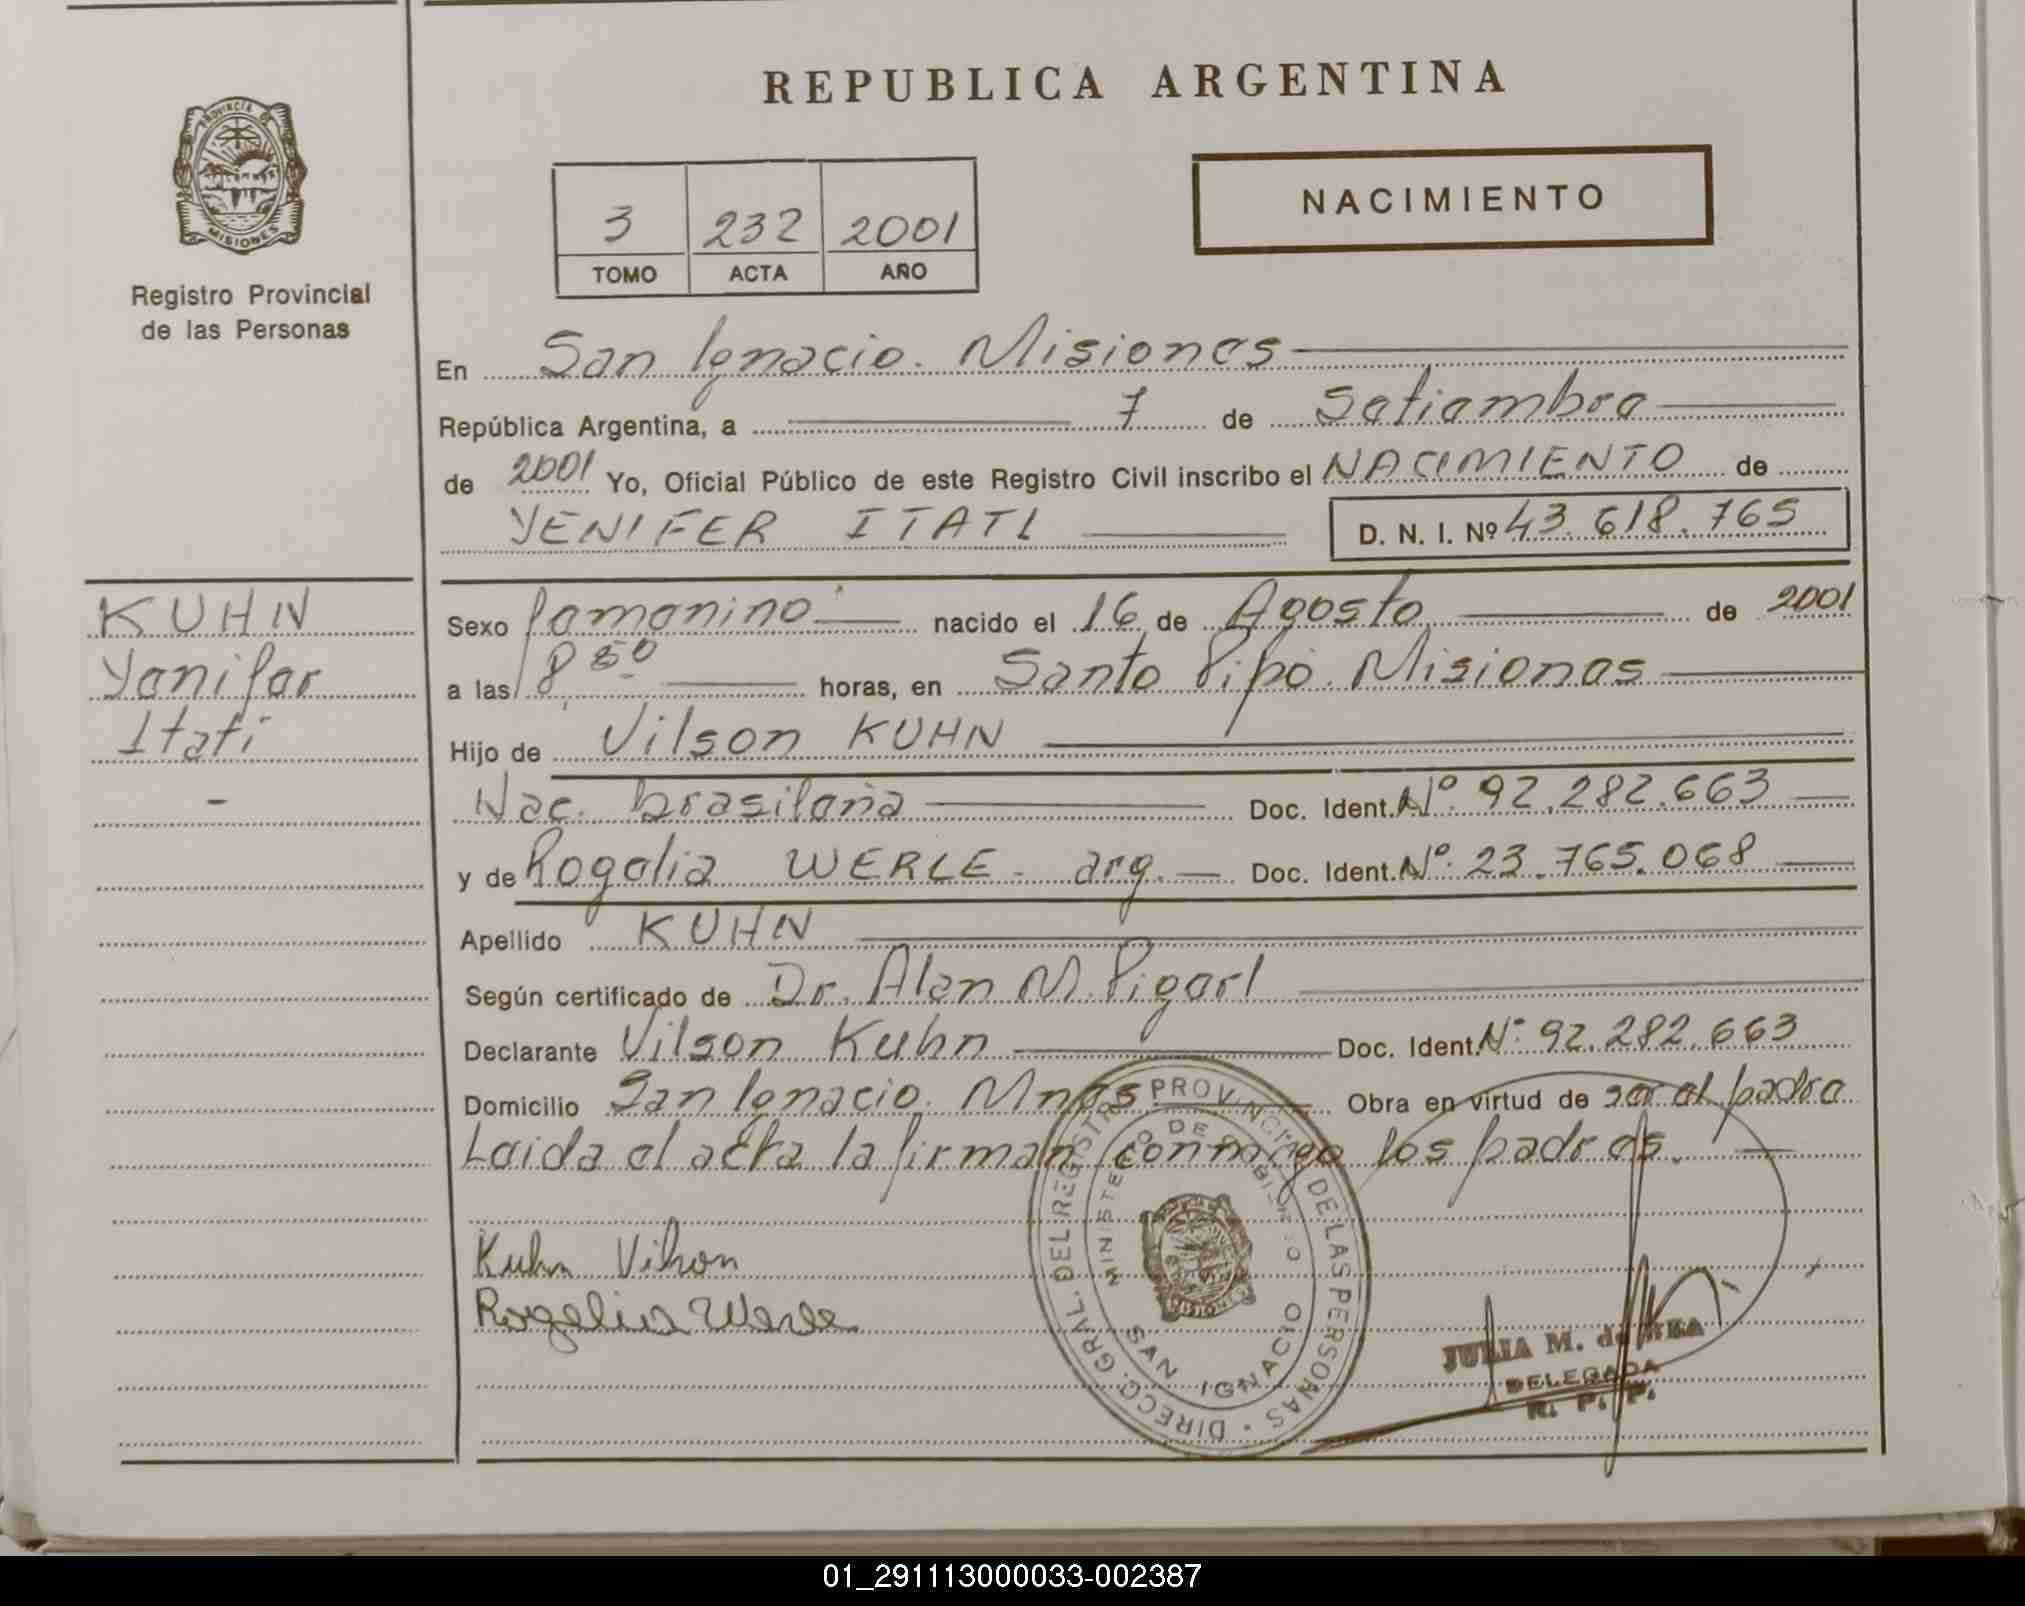 REPUBLICA ARGENTINA
PROVINCIA
MISIONES
Registro Provincial
de las Personas
3 232 2001
TOMO ACTA AÑO
NACIMIENTO
En San Ignacio. Misiones
República Argentina, a 7 de Setiembre
de 2001 Yo, Oficial Público de este Registro Civil inscribo el NACIMIENTO de
YENIFER ITATI D. N. I. Nº 43.618.765
KUHN
Yenifer
Itatí
-
Sexo femenino nacido el 16 de Agosto de 2001
a las 8,50 horas, en Santo Pipó. Misiones
Hijo de Vilson KUHN
Nac. brasileña Doc. Ident. Nº. 92.282.663
y de Rogelia WERLE - arg. Doc. Ident. Nº. 23.765.068
Apellido KUHN
Según certificado de Dr. Alan M.
Declarante Vilson Kuhn Doc. Ident. Nº. 92.282.663
Domicilio San Ignacio. Mnes Obra en virtud de ser el padre
Leida el acta la firman conmigo los padres.
Kuhn Vilson
Rogelia Werle
DIRECC. GRAL. DEL REGISTRO PROVINCIAL DE LAS PERSONAS
MINISTERIO DE GOBIERNO
SAN IGNACIO
JULIA M. de
DELEGADA
R. P. P.
01_291113000033-002387